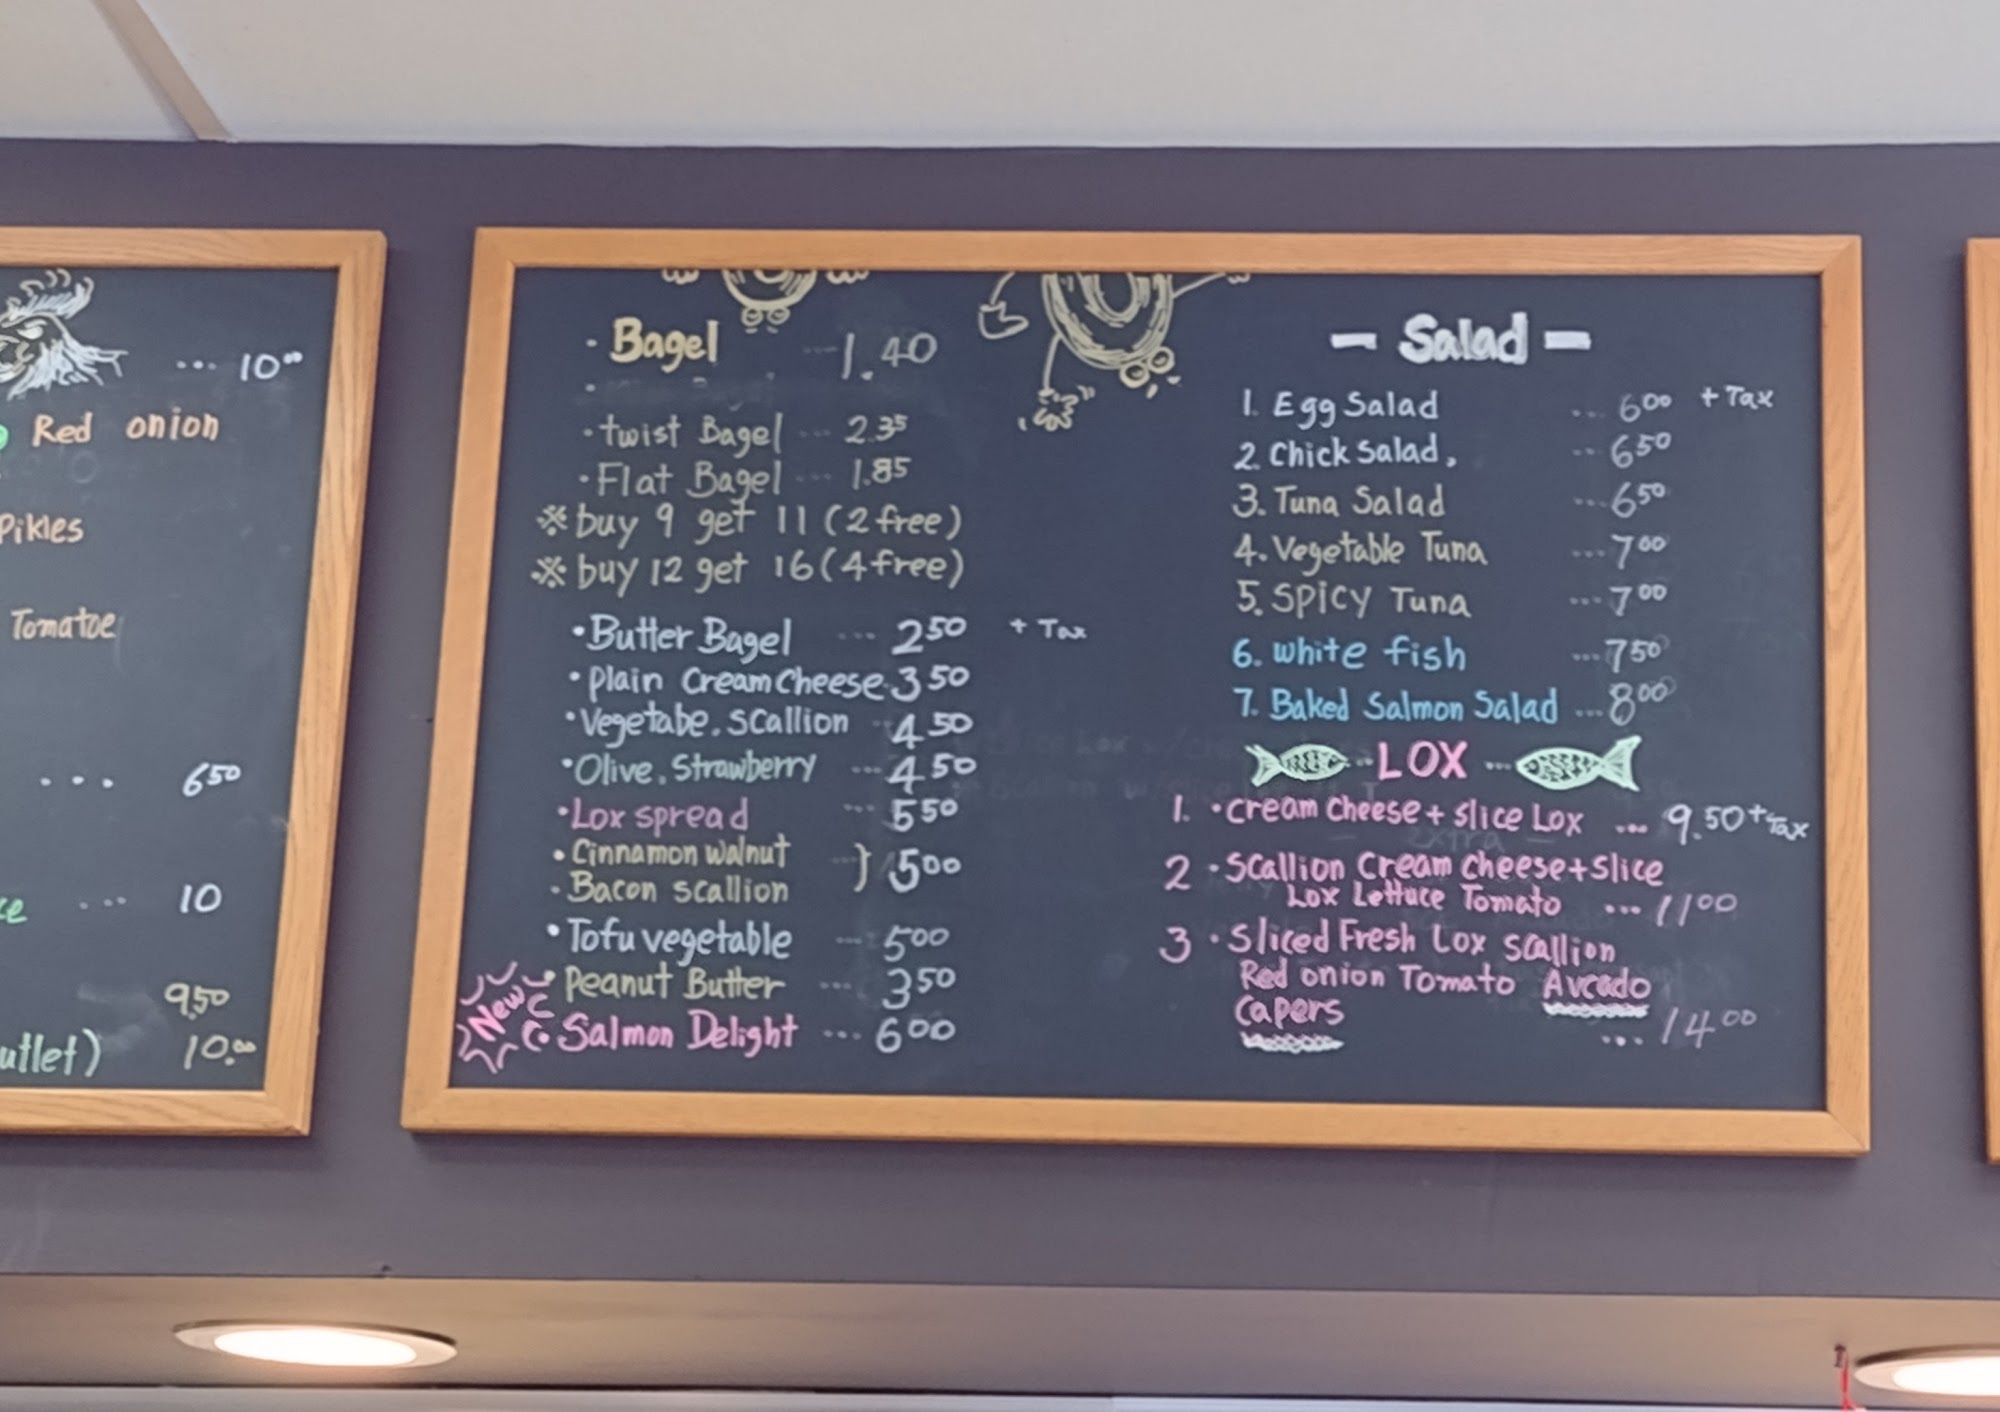 ... 10⁰⁰
Red onion
Pikles
Tomatoe
... 6⁵⁰
... 10
9.50
10.⁰⁰
· Bagel ... 1.40
· twist Bagel ... 2.35
· Flat Bagel ... 1.85
※ buy 9 get 11 (2 free)
※ buy 12 get 16 (4 free)
· Butter Bagel ... 2⁵⁰ + Tax
· Plain Cream Cheese 3⁵⁰
· Vegetabe. Scallion ... 4⁵⁰
· Olive. Strawberry ... 4⁵⁰
· Lox spread ... 5⁵⁰
· Cinnamon walnut
· Bacon scallion ... } 5⁰⁰
· Tofu vegetable ... 5⁰⁰
· Peanut Butter ... 3⁵⁰
New · Salmon Delight ... 6⁰⁰
- Salad -
1. Egg Salad ... 6⁰⁰ + Tax
2. Chick Salad. ... 6⁵⁰
3. Tuna Salad ... 6⁵⁰
4. Vegetable Tuna ... 7⁰⁰
5. Spicy Tuna ... 7⁰⁰
6. white fish ... 7⁵⁰
7. Baked Salmon Salad ... 8⁰⁰
LOX
1. · Cream Cheese + Slice Lox ... 9.50 + Tax
2 · Scallion Cream Cheese + Slice
Lox Lettuce Tomato ... 11⁰⁰
3 · Sliced Fresh Lox Scallion
Red onion Tomato Avcado
Capers
... 14⁰⁰